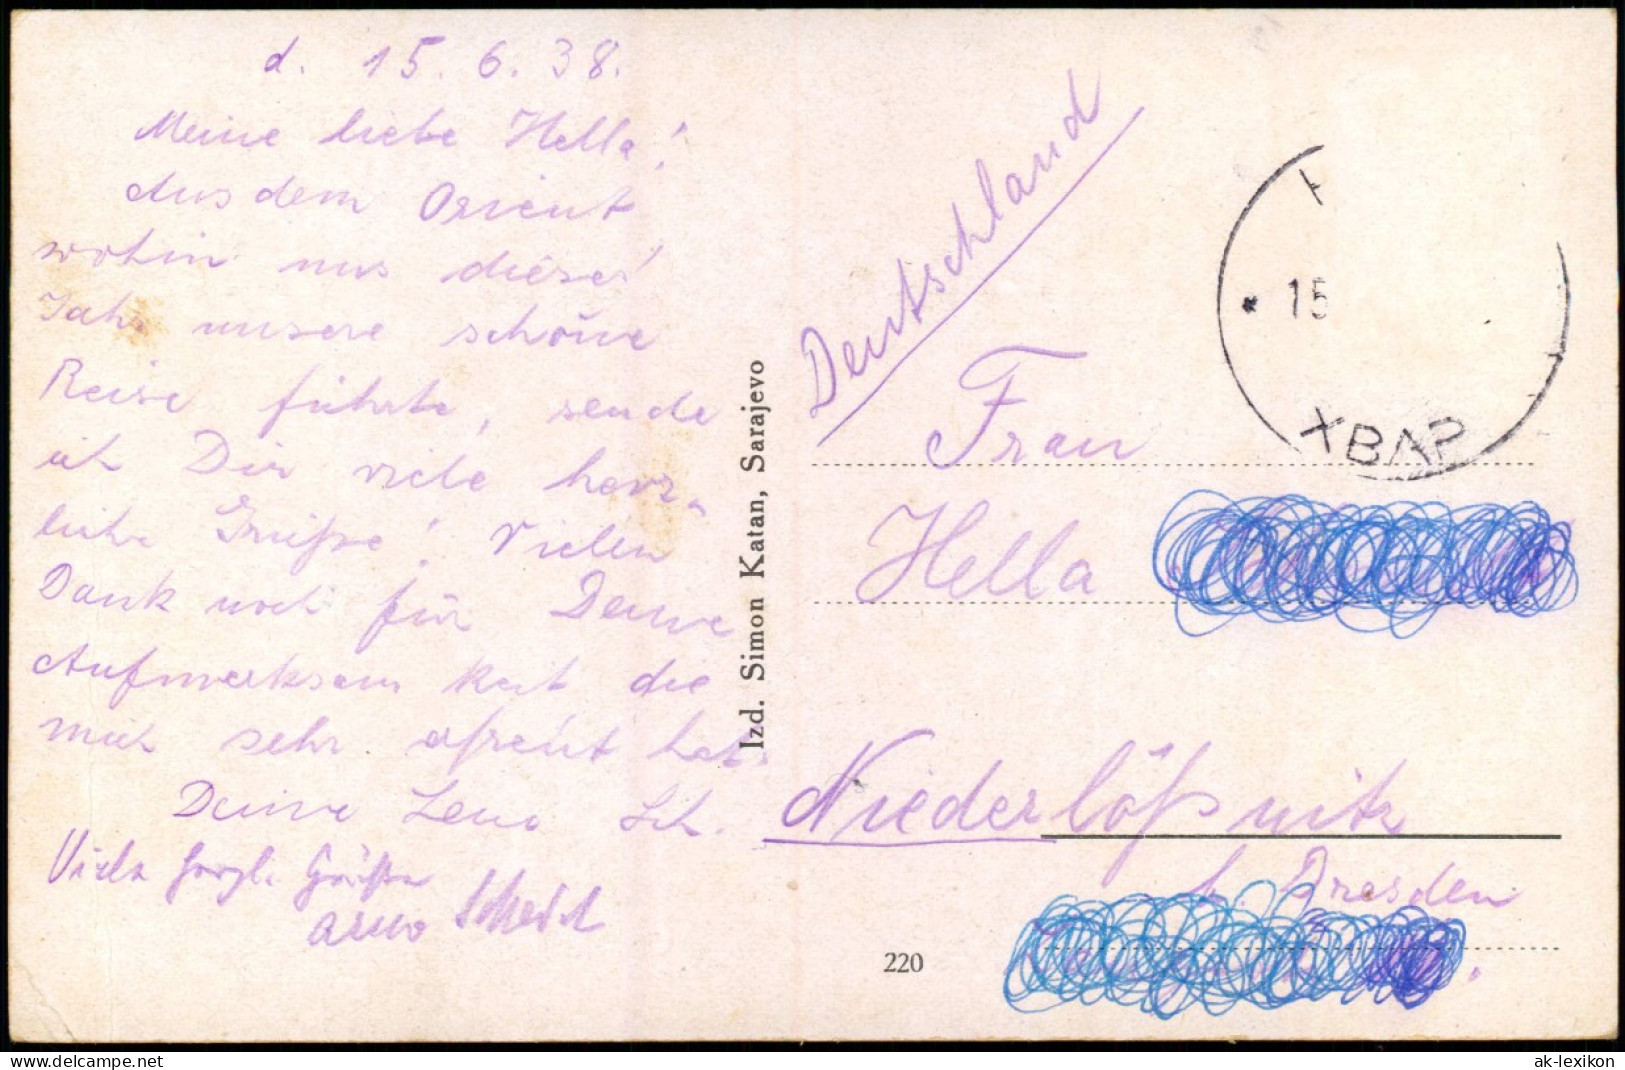 d. 15. 6. 38.
Meine liebe Hella!
Aus dem Orient
wohin uns dieses
Jahr unsere schöne
Reise führte, sende
ich Dir viele herz-
liche Grüße! Vielen
Dank noch für Deine
Aufmerksamkeit die
mich sehr erfreut hat.
Deine Leno Sch.
Viele herzl. Grüße
Arno
Izd. Simon Katan, Sarajevo
Deutschland
15
ХВАР
Frau
Hella
Niederlößnitz
b. Dresden
220
www.delcampe.net
ak-lexikon